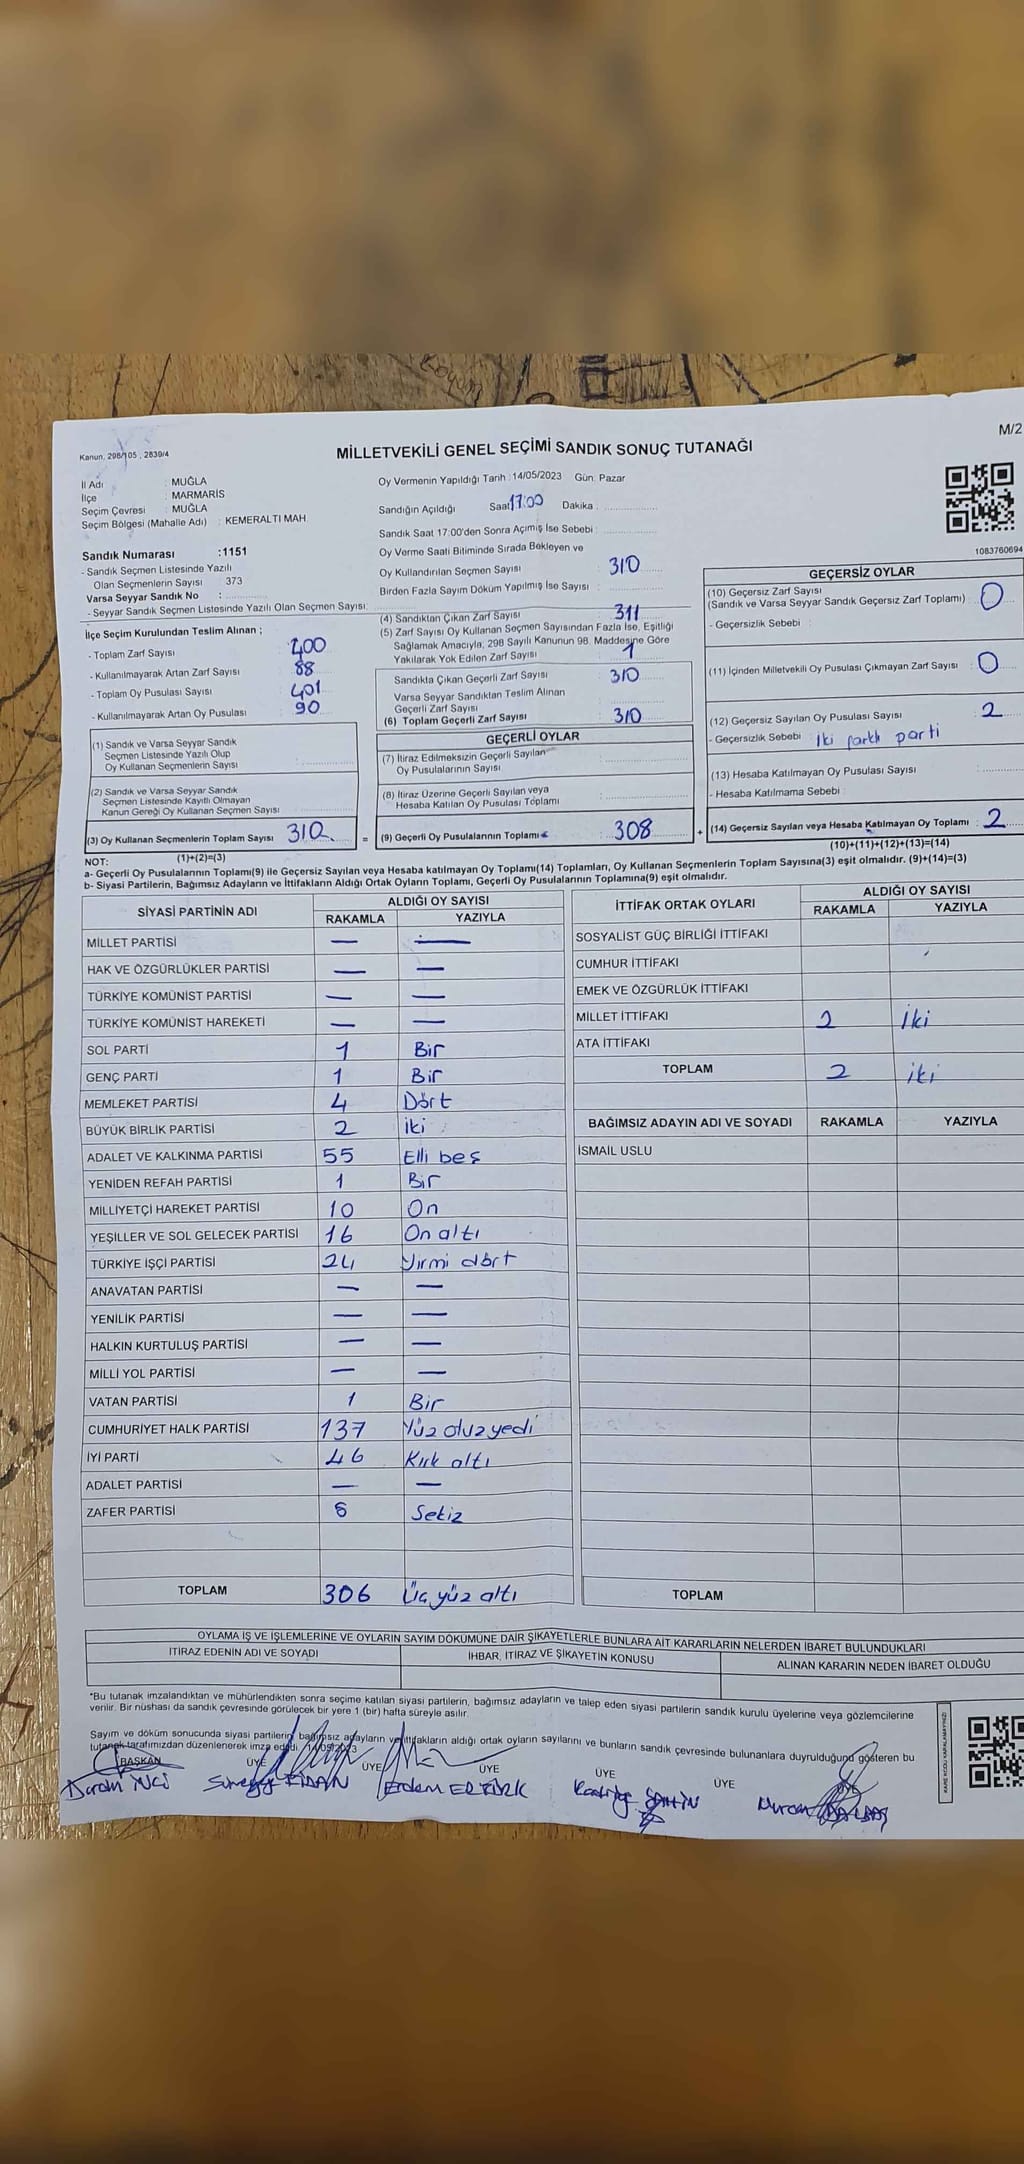 Kanun, 298/105 , 2839/4
MİLLETVEKİLİ GENEL SEÇİMİ SANDIK SONUÇ TUTANAĞI
M/2
İl Adı : MUĞLA
İlçe : MARMARİS
Seçim Çevresi : MUĞLA
Seçim Bölgesi (Mahalle Adı) : KEMERALTI MAH
Sandık Numarası :1151
- Sandık Seçmen Listesinde Yazılı
Olan Seçmenlerin Sayısı 373
Varsa Seyyar Sandık No :
- Seyyar Sandık Seçmen Listesinde Yazılı Olan Seçmen Sayısı:
İlçe Seçim Kurulundan Teslim Alınan ;
- Toplam Zarf Sayısı : 400
- Kullanılmayarak Artan Zarf Sayısı : 88
- Toplam Oy Pusulası Sayısı : 401
- Kullanılmayarak Artan Oy Pusulası : 90
(1) Sandık ve Varsa Seyyar Sandık
Seçmen Listesinde Yazılı Olup
Oy Kullanan Seçmenlerin Sayısı :
(2) Sandık ve Varsa Seyyar Sandık
Seçmen Listesinde Kayıtlı Olmayan
Kanun Gereği Oy Kullanan Seçmen Sayısı :
(3) Oy Kullanan Seçmenlerin Toplam Sayısı : 310 =
(1)+(2)=(3)
Oy Vermenin Yapıldığı Tarih :14/05/2023 Gün: Pazar
Sandığın Açıldığı Saat 17:00 Dakika :
Sandık Saat 17:00'den Sonra Açımış İse Sebebi :
Oy Verme Saati Bitiminde Sırada Bekleyen ve
Oy Kullandırılan Seçmen Sayısı : 310
Birden Fazla Sayım Döküm Yapılmış İse Sayısı :
(4) Sandıktan Çıkan Zarf Sayısı : 311
(5) Zarf Sayısı Oy Kullanan Seçmen Sayısından Fazla İse, Eşitliği
Sağlamak Amacıyla, 298 Sayılı Kanunun 98. Maddesine Göre
Yakılarak Yok Edilen Zarf Sayısı : 1
Sandıkta Çıkan Geçerli Zarf Sayısı : 310
Varsa Seyyar Sandıktan Teslim Alınan
Geçerli Zarf Sayısı :
(6) Toplam Geçerli Zarf Sayısı : 310
GEÇERLİ OYLAR
(7) İtiraz Edilmeksizin Geçerli Sayılan
Oy Pusulalarının Sayısı :
(8) İtiraz Üzerine Geçerli Sayılan veya
Hesaba Katılan Oy Pusulası Toplamı :
(9) Geçerli Oy Pusulalarının Toplamı : 308 +
1083760694
GEÇERSİZ OYLAR
(10) Geçersiz Zarf Sayısı
(Sandık ve Varsa Seyyar Sandık Geçersiz Zarf Toplamı) : 0
- Geçersizlik Sebebi :
(11) İçinden Milletvekili Oy Pusulası Çıkmayan Zarf Sayısı : 0
(12) Geçersiz Sayılan Oy Pusulası Sayısı : 2
- Geçersizlik Sebebi : İki farklı parti
(13) Hesaba Katılmayan Oy Pusulası Sayısı :
- Hesaba Katılmama Sebebi :
(14) Geçersiz Sayılan veya Hesaba Katılmayan Oy Toplamı : 2
(10)+(11)+(12)+(13)=(14)
NOT:
a- Geçerli Oy Pusulalarının Toplamı(9) ile Geçersiz Sayılan veya Hesaba katılmayan Oy Toplamı(14) Toplamları, Oy Kullanan Seçmenlerin Toplam Sayısına(3) eşit olmalıdır. (9)+(14)=(3)
b- Siyasi Partilerin, Bağımsız Adayların ve İttifakların Aldığı Ortak Oyların Toplamı, Geçerli Oy Pusulalarının Toplamına(9) eşit olmalıdır.
SİYASİ PARTİNİN ADI ALDIĞI OY SAYISI
RAKAMLA YAZIYLA
MİLLET PARTİSİ — —
HAK VE ÖZGÜRLÜKLER PARTİSİ — —
TÜRKİYE KOMÜNİST PARTİSİ — —
TÜRKİYE KOMÜNİST HAREKETİ — —
SOL PARTİ 1 Bir
GENÇ PARTİ 1 Bir
MEMLEKET PARTİSİ 4 Dört
BÜYÜK BİRLİK PARTİSİ 2 iki
ADALET VE KALKINMA PARTİSİ 55 Elli beş
YENİDEN REFAH PARTİSİ 1 Bir
MİLLİYETÇİ HAREKET PARTİSİ 10 On
YEŞİLLER VE SOL GELECEK PARTİSİ 16 On altı
TÜRKİYE İŞÇİ PARTİSİ 24 Yirmi dört
ANAVATAN PARTİSİ — —
YENİLİK PARTİSİ — —
HALKIN KURTULUŞ PARTİSİ — —
MİLLİ YOL PARTİSİ — —
VATAN PARTİSİ 1 Bir
CUMHURİYET HALK PARTİSİ 137 Yüz otuz yedi
İYİ PARTİ 46 Kırk altı
ADALET PARTİSİ — —
ZAFER PARTİSİ 8 Sekiz
TOPLAM 306 Üç yüz altı
İTTİFAK ORTAK OYLARI ALDIĞI OY SAYISI
RAKAMLA YAZIYLA
SOSYALİST GÜÇ BİRLİĞİ İTTİFAKI
CUMHUR İTTİFAKI
EMEK VE ÖZGÜRLÜK İTTİFAKI
MİLLET İTTİFAKI 2 İki
ATA İTTİFAKI
TOPLAM 2 iki
BAĞIMSIZ ADAYIN ADI VE SOYADI RAKAMLA YAZIYLA
İSMAİL USLU
TOPLAM
OYLAMA İŞ VE İŞLEMLERİNE VE OYLARIN SAYIM DÖKÜMÜNE DAİR ŞİKAYETLERLE BUNLARA AİT KARARLARIN NELERDEN İBARET BULUNDUKLARI
İTİRAZ EDENİN ADI VE SOYADI İHBAR, İTİRAZ VE ŞİKAYETİN KONUSU ALINAN KARARIN NEDEN İBARET OLDUĞU
*Bu tutanak imzalandıktan ve mühürlendikten sonra seçime katılan siyasi partilerin, bağımsız adayların ve talep eden siyasi partilerin sandık kurulu üyelerine veya gözlemcilerine
verilir. Bir nüshası da sandık çevresinde görülecek bir yere 1 (bir) hafta süreyle asılır.
Sayım ve döküm sonucunda siyasi partilerin, bağımsız adayların ve ittifakların aldığı ortak oyların sayılarını ve bunların sandık çevresinde bulunanlara duyrulduğunu gösteren bu
tutanak tarafımızdan düzenlenerek imza edildi. 14/05/2023
BAŞKAN ÜYE ÜYE ÜYE ÜYE ÜYE ÜYE
Erdem ERTÜRK
ŞAHİN
Nurcan